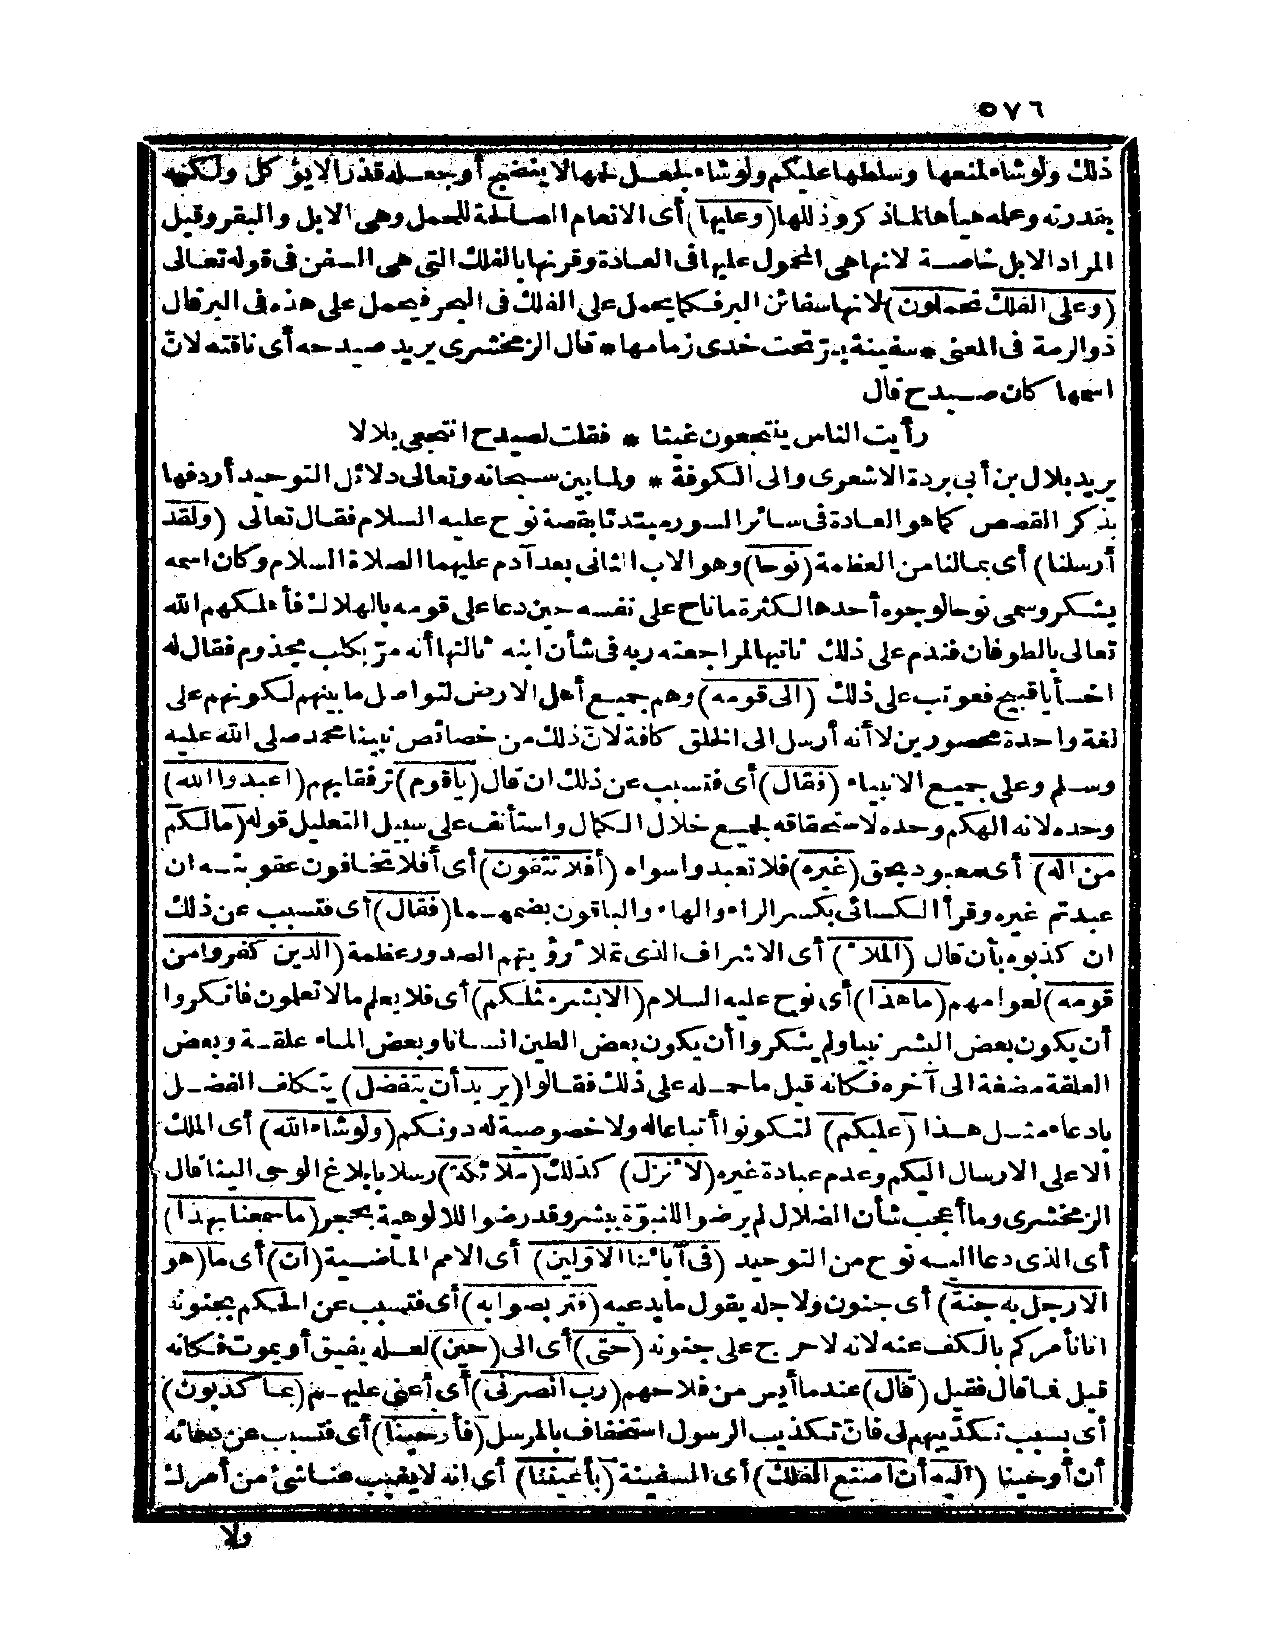 ٥٧٦
ذلك ولو شاء لمنعها وسلطها عليكم ولو شاء لجعل لحمها لا ينضج أو جعله قذرا لا يؤكل ولكنه
بقدرته وعلمه هيأها لما ذكر وذللها (وعليها) أى الانعام الصالحة للحمل وهى الابل والبقر وقيل
المراد الابل خاصة لانها هى المحمول عليها فى العادة وقرنها بالفلك التى هى السفن فى قوله تعالى
(وعلى الفلك تحملون) لانها سفائن البر فكما يحمل على الفلك فى البحر فيحمل على هذه فى البر قال
ذو الرمة فى المعنى * سفينة بر تحت خدى زمامها * قال الزمخشرى يريد صيدحه أى ناقته لانّ
اسمها كان صيدح قال
رأيت الناس ينتجعون غيثا * فقلت لصيدح انتجعى بلالا
يريد بلال بن أبى بردة الاشعرى والى الكوفة * ولما بين سبحانه وتعالى دلائل التوحيد أردفها
بذكر القصص كما هو العادة فى سائر السور مبتدئا بقصة نوح عليه السلام فقال تعالى (ولقد
أرسلنا) أى بمالنا من العظمة (نوحا) وهو الاب الثانى بعد آدم عليهما الصلاة السلام وكان اسمه
يشكر وسمى نوحا لوجوه أحدها لكثرة ما ناح على نفسه حين دعا على قومه بالهلاك فأهلكهم الله
تعالى بالطوفان فندم على ذلك ثانيها لمراجعته ربه فى شأن ابنه ثالثها أنه مرّ بكلب مجذوم فقال له
اخسأ يا قبيح فعوتب على ذلك (الى قومه) وهم جميع أهل الارض لتواصل ما بينهم لكونهم على
لغة واحدة محصورين لا أنه أرسل الى الخلق كافة لانّ ذلك من خصائص نبينا محمد صلى الله عليه
وسلم وعلى جميع الانبياء (فقال) أى فتسبب عن ذلك ان قال (يا قوم) ترفقا بهم (اعبدوا الله)
وحده لانه الهكم وحده لاستحقاقه لجميع خلال الكمال واستأنف على سبيل التعليل قوله (مالكم
من اله) أى معبود بحق (غيره) فلا تعبدوا سواه (أفلا تتقون) أى أفلا تخافون عقوبته ان
عبدتم غيره وقرأ الكسائى بكسر الراء والهاء والباقون بضمهما (فقال) أى فتسبب عن ذلك
ان كذبوه بأن قال (الملأ) أى الاشراف الذى تملأ رؤيتهم الصدور عظمة (الذين كفروا من
قومه) لعوامهم (ما هذا) أى نوح عليه السلام (الا بشر مثلكم) أى فلا يعلم ما لا تعلمون فانكروا
أن يكون بعض البشر نبيا ولم ينكروا أن يكون بعض الطين انسانا وبعض الماء علقة وبعض
العلقة مضغة الى آخره فكانه قيل ما حمله على ذلك فقالوا (يريد أن يتفضل) يتكلف الفضل
بادعاء مثل هذا (عليكم) لتكونوا أتباعا له ولا خصوصية له دونكم (ولو شاء الله) أى الملك
الاعلى الارسال اليكم وعدم عبادة غيره (لأنزل) كذلك (ملائكة) رسلا بابلاغ الوحى الينا قال
الزمخشرى وما أعجب شأن الضلال لم يرضوا للنبوّة ببشر وقد رضوا للالوهية بحجر (ما سمعنا بهذا)
أى الذى دعا اليه نوح من التوحيد (فى آبائنا الاولين) أى الامم الماضية (ان) أى ما (هو
الا رجل به جنة) أى جنون ولاجله يقول ما يدعيه (فتربصوا به) أى فتسبب عن الحكم بجنونه
انا نأمركم بالكف عنه لانه لا حرج على جنونه (حتى) أى الى (حين) لعله يفيق أو يموت فكانه
قيل فما قال فقيل (قال) عند ما أيس من فلاحهم (رب انصرنى) أى أعنى عليهم (بما كذبون)
أى بسبب تكذيبهم لى فانّ تكذيب الرسول استخفاف بالمرسل (فأوحينا) أى فتسبب عن دعائه
أن أوحينا (اليه أن اصنع الفلك) أى السفينة (بأعيننا) أى انه لا يغيب عنا شئ من أمرك
ولا